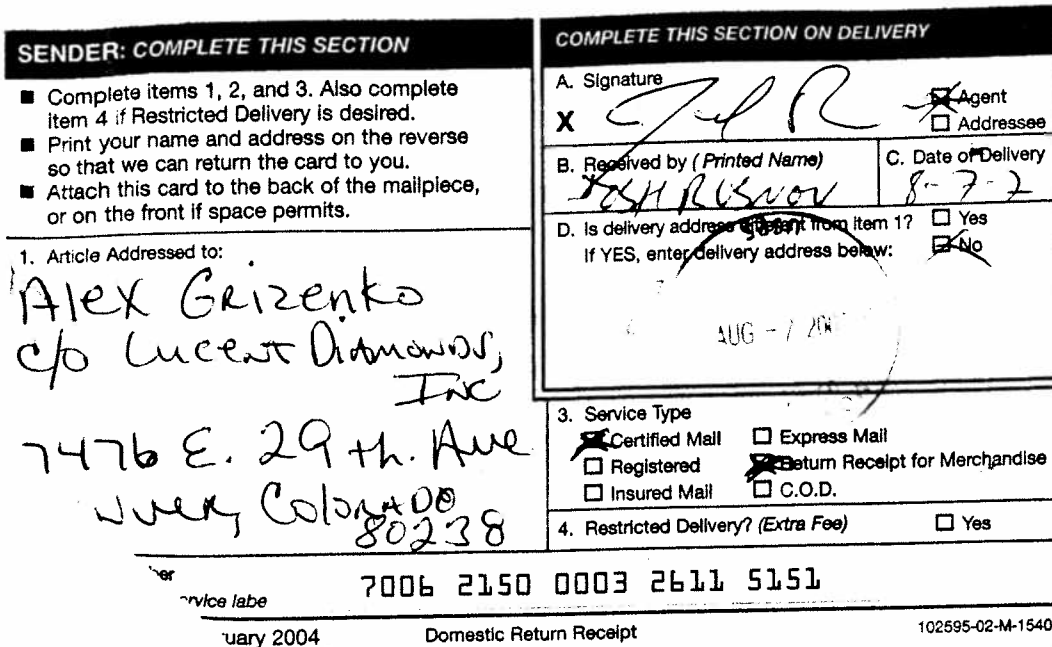 SENDER: COMPLETE THIS SECTION
■ Complete items 1, 2, and 3. Also complete
item 4 if Restricted Delivery is desired.
■ Print your name and address on the reverse
so that we can return the card to you.
■ Attach this card to the back of the mailpiece,
or on the front if space permits.
1. Article Addressed to:
Alex Grizenko
c/o Lucent Diamonds,
Inc
7476 E. 29th. Ave
Colorado
80238
COMPLETE THIS SECTION ON DELIVERY
A. Signature
X
Agent
Addressee
B. Received by (Printed Name)
C. Date of Delivery
8-7-7
D. Is delivery address different from item 1? Yes
If YES, enter delivery address below: No
AUG - 7
3. Service Type
Certified Mail Express Mail
Registered Return Receipt for Merchandise
Insured Mail C.O.D.
4. Restricted Delivery? (Extra Fee) Yes
7006 2150 0003 2611 5151
rvice labe
uary 2004 Domestic Return Receipt 102595-02-M-1540